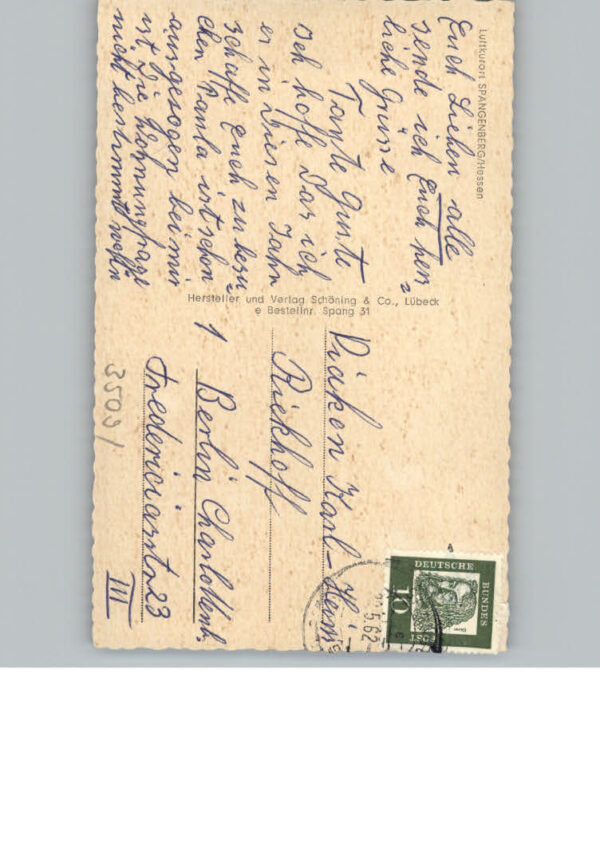 Luftkurort SPANGENBERG/Hessen
Euch Lieben alle
sende ich Euch herz
liche Grüsse
Tante Grete
Ich hoffe das ich
es in diesen Jahr
schaffe Euch zu besu
chen ist schon
ausgezogen bei mir
ist die Wohnungfrage
nicht bestimmt
Hersteller und Verlag Schöning & Co., Lübeck
e Bestellnr. Spang 31
Diakon Karl-Heinz
Riekhoff
1 Berlin Charlottenb.
Fredericiastr 23
III
35091
DEUTSCHE
BUNDES
POST
10
5.62